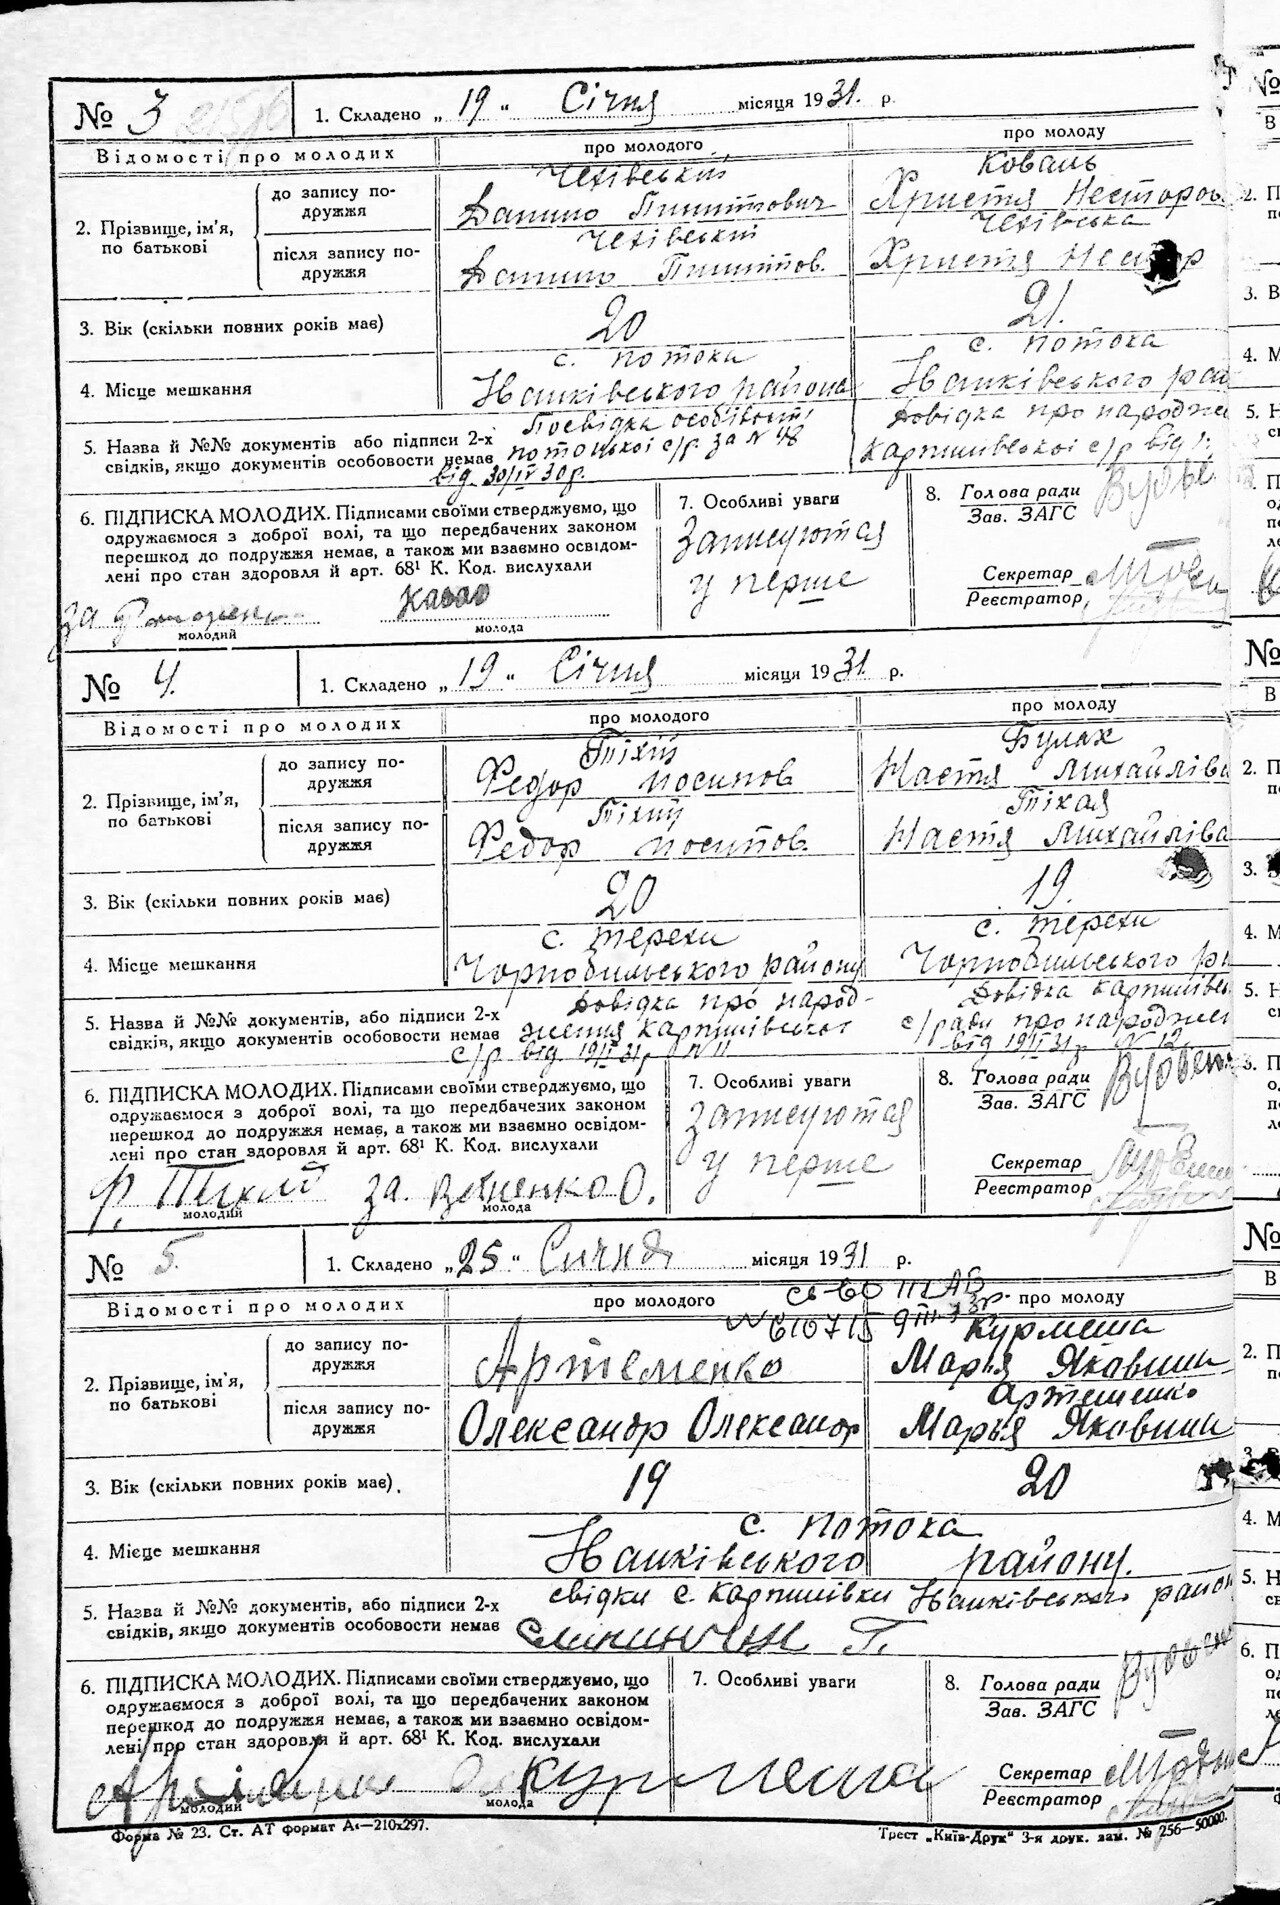 № 3
1. Складено „ 19 “ Січня місяця 1931. р.
Відомості про молодих
про молодого
про молоду
2. Прізвище, ім'я, по батькові
до запису по-
дружжя
Чехівський
Данило Пилиппович
Коваль
Христя Несторов.
після запису по-
дружжя
Чехівський
Данило Пилиппов.
Чехівська
Христя Нестор
3. Вік (скільки повних років має)
20
21.
4. Місце мешкання
с. Потока
Іванківського района
с. Потока
Іванківського рай
5. Назва й №№ документів або підписи 2-х
свідків, якщо документів особовости немає
Посвідка особивості
потоцькоі с/р. за N 48
від 30/IV 30р.
Довідка про народже
Карпилівськоі с/р від
6. ПІДПИСКА МОЛОДИХ. Підписами своїми стверджуємо, що
одружаємося з доброї волі, та що передбачених законом
перешкод до подружжя немає, а також ми взаємно освідом-
лені про стан здоровля й арт. 68¹ К. Код. вислухали
за
молодий
молода
7. Особливі уваги
Записуются
у перше
8. Голова ради
Зав. ЗАГС
Секретар
Реєстратор
№ 4.
1. Складено „ 19 “ Січня місяця 1931. р.
Відомості про молодих
про молодого
про молоду
2. Прізвище, ім'я,
по батькові
до запису по-
дружжя
Тіхій
Федор Йосипов
Булах
Настя Михайлівн
після запису по-
дружжя
Тіхий
Федор Йосипов.
Тіхая
Настя Михайлівн
3. Вік (скільки повних років має)
20
19.
4. Місце мешкання
с. Терехи
Чорнобильського району
с. Терехи
Чорнобильського ра
5. Назва й №№ документів, або підписи 2-х
свідків, якщо документів особовости немає
Довідка про народ-
ження Карпилівськоі
с/р від 19/I 31р N 11
Довідка Карпилівсь
с/ради про народжен
від 19/I 31р N 12.
6. ПІДПИСКА МОЛОДИХ. Підписами своїми стверджуємо, що
одружаємося з доброї волі, та що передбачених законом
перешкод до подружжя немає, а також ми взаємно освідом-
лені про стан здоровля й арт. 68¹ К. Код. вислухали
Ф. Тихий за.
молодий
молода
7. Особливі уваги
Записуются
у перше
8. Голова ради
Зав. ЗАГС
Секретар
Реєстратор
№ 5.
1. Складено „ 25 “ Сичня місяця 1931 р.
Відомості про молодих
про молодого
про молоду
2. Прізвище, ім'я,
по батькові
до запису по-
дружжя
Артеменко
Курмеша
Марья Яковивн
після запису по-
дружжя
Олександр Олександр
Артеменко
Марья Яковивн
3. Вік (скільки повних років має).
19
20
4. Місце мешкання
с. Потока
Іванківського району.
5. Назва й №№ документів, або підписи 2-х
свідків, якщо документів особовости немає
свідки с. Карпилівки Іванківського район
6. ПІДПИСКА МОЛОДИХ. Підписами своїми стверджуємо, що
одружаємося з доброї волі, та що передбачених законом
перешкод до подружжя немає, а також ми взаємно освідом-
лені про стан здоровля й арт. 68¹ К. Код. вислухали
Курмеша
молодий
молода
7. Особливі уваги
8. Голова ради
Зав. ЗАГС
Секретар
Реєстратор
Форма № 23. Ст. АТ формат А₄—210х297.
Трест „Київ-Друк“ 3-я друк. зам. № 256—50000.